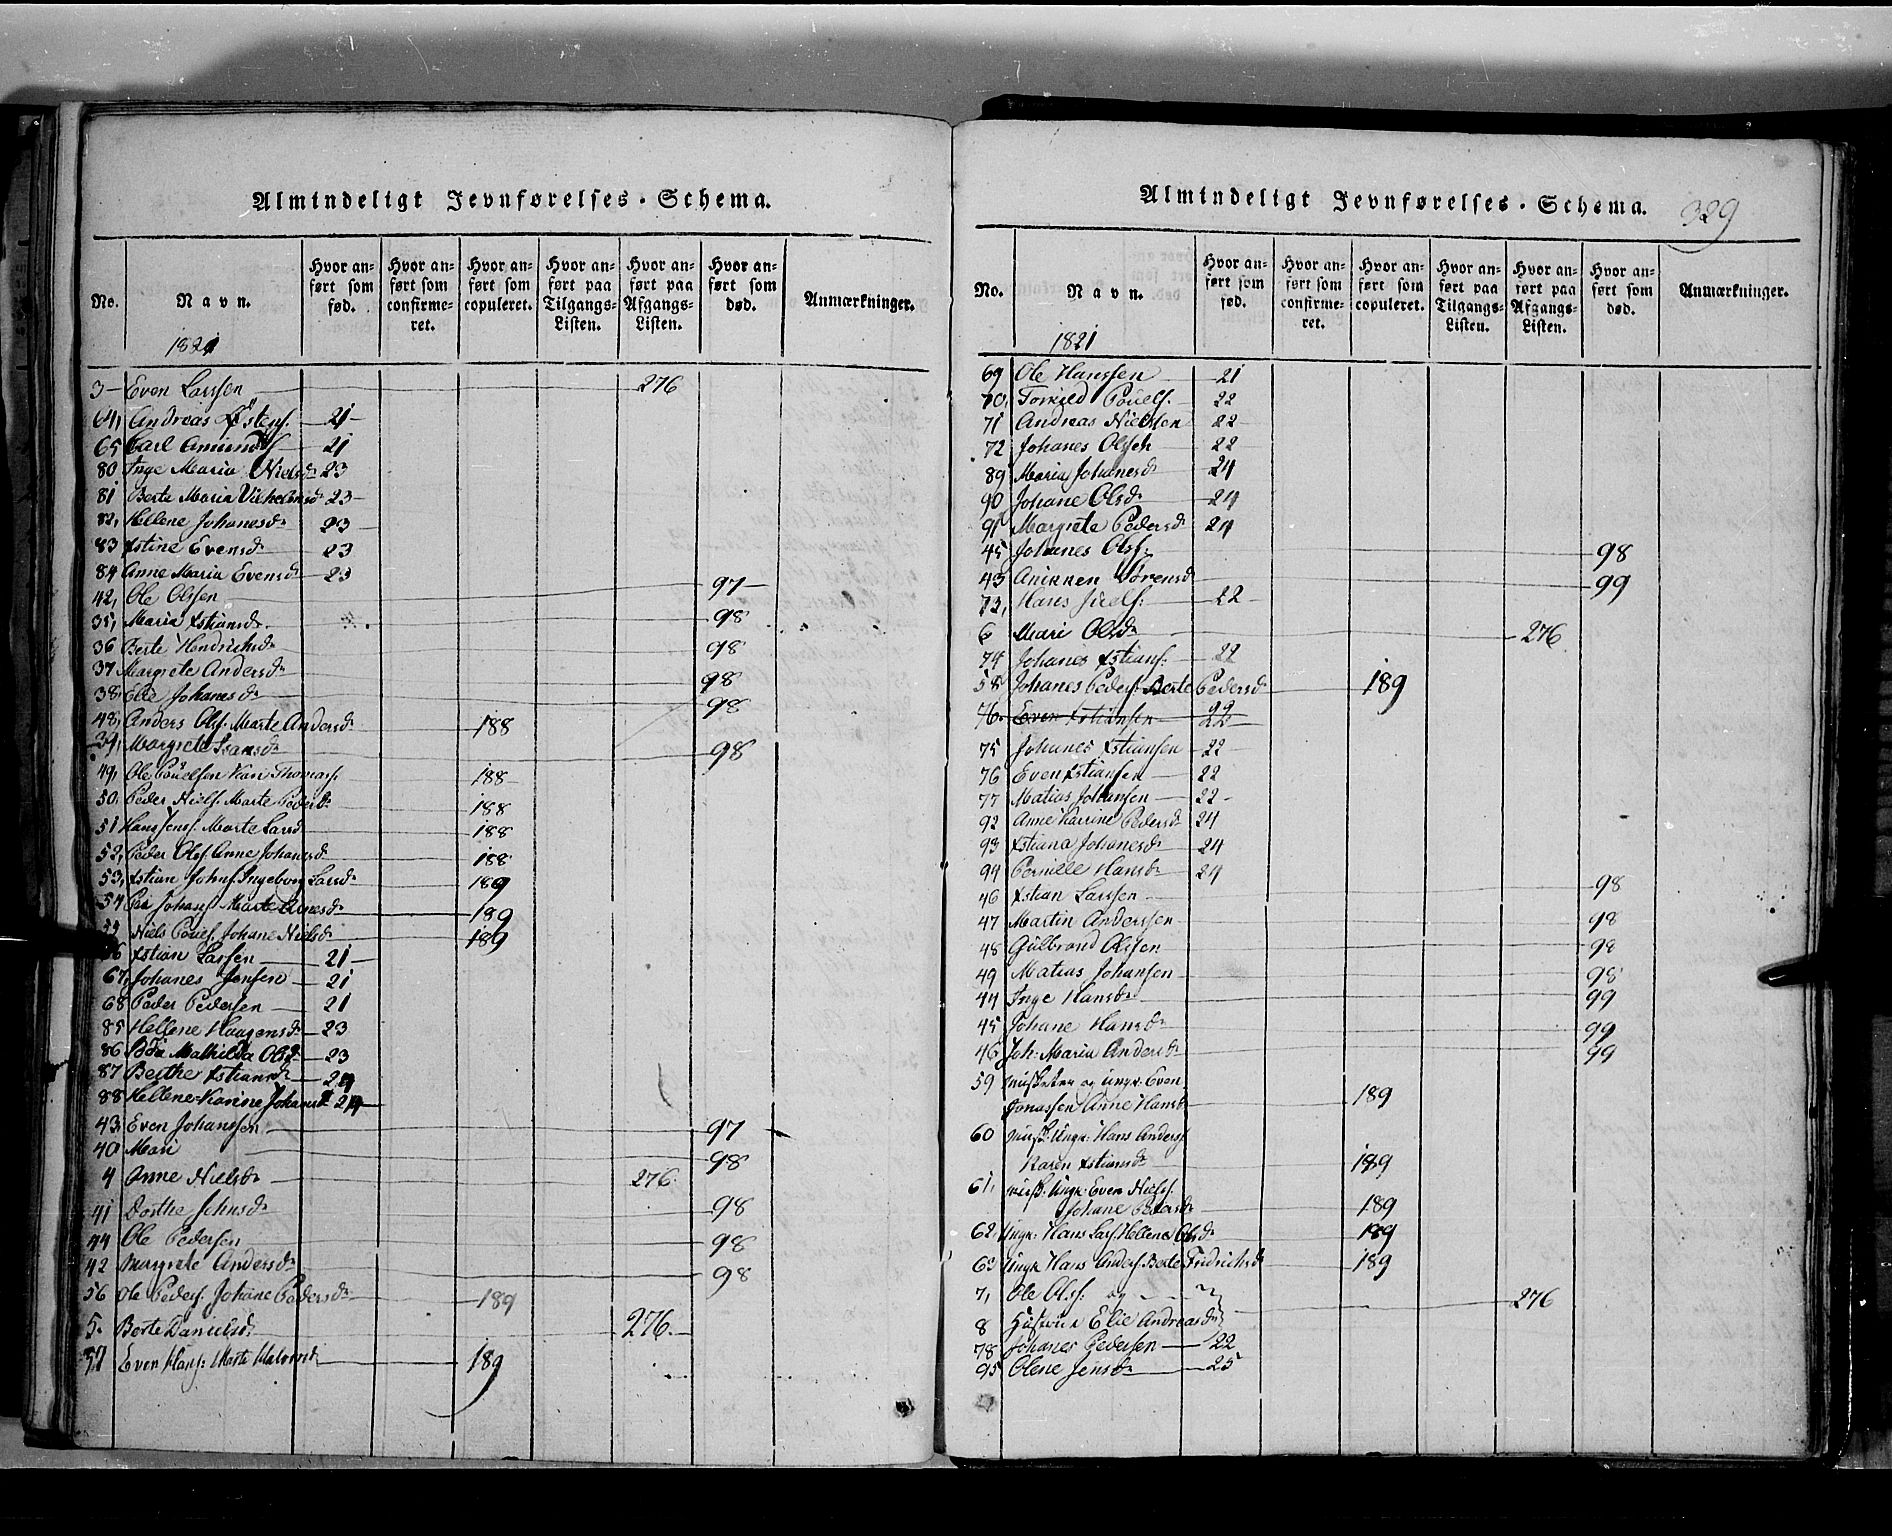 Almindeligt Jevnførelses-Schema.
No.
Navn.
Hvor anført som fød.
Hvor anført som confirmeret.
Hvor anført som copuleret.
Hvor anført paa Tilgangs-Listen.
Hvor anført paa Afgangs-Listen.
Hvor anført som død.
Anmærkninger.
1821
3 Even Larssen 276
64, Andreas Østens. 21
65 Carl Amunds 21
80 Inge Maria Nielsd. 23
81 Berte Maria Vilhelmsd 23
82, Hellene Johanesd. 23
83 Xstine Evensd. 23
84 Anne Maria Evensd. 23
42, Ole Olsen 97
35, Maria Xstiansd. 98
36 Berte Hendrichsd. 98
37 Margrete Andersd. 98
38, Elie Johanesd. 98
48, Anders Ols. Marte Andersd. 188
39, Margrete 98
49, Ole Pouelsen Kari Thomas 188
50, Peder Niels. Marte Pedersd. 188
51 Hans Jens. Marte Larsd 188
52, Peder Ols. Anne Johanesd 188
53, Xstian Johns. Ingeborg Larsd. 189
54 Johans. Marte Arnesd. 189
55 Niels Pouels. Johane Nielsd. 189
66 Xstian Larssen 21
67, Johanes Jensen 21
68 Peder Pedersen 21
85 Hellene Haagensd. 23
86 Mathilda Olsd. 23
87 Berthe Xstiansd. 24
88 Hellene Karine Johansd 24
43, Even Johanssen 97
40 Mari 98
4 Anne Nielsd. 276
41 Dorthe Johnsd. 98
44 Ole Pedersen 98
42 Margrete Andersd. 98
56 Ole Peders. Johane Pedersd. 189
5. Berte Danielsd. 276
57 Even Hans: Marte Halvorsd 189
Almindeligt Jevnførelses-Schema.
329
No.
Navn.
Hvor anført som fød.
Hvor anført som confirmeret.
Hvor anført som copuleret.
Hvor anført paa Tilgangs-Listen.
Hvor anført paa Afgangs-Listen.
Hvor anført som død.
Anmærkninger.
1821
69 Ole Hanssen 21
70, Torkild Pouels. 22
71 Andreas Nielssen 22
72 Johanes Olsen 22
89 Maria Johanesd. 24
90 Johane Olsd. 24
91 Margrete Pedersd. 24
45 Johanes Ols. 98
43 Anikken Sørensd 99
73, Hans Juels: 22
6 Mari Olsd. 276
74 Johanes Xstians. 22
58 Johanes Peders. Berte Pedersd. 189
76. Even Xstiansen 22
75 Johanes Xstiansen 22
76 Even Xstiansen 22
77 Matias Johansen 22
92 Anne Karrine Pedersd 24
93 Xstiana Johanesd. 24
94 Pernille Hansd. 24
46 Xstian Larssen 98
47 Martin Anderssen 98
48 Gulbrand Olssen 98
49 Matias Johansen 98
44 Inge Hansd. 99
45 Johane Hansd. 99
46 Joh: Maria Andersd. 99
59 Musketeer og Ungk: Even
Jonassen Anne Hansd. 189
60 Musk: Ungk: Hans Anders.
Karen Xstiansd. 189
61, Musk: Ungk: Even Niels.
Johane Pedersd. 189
62, Ungk: Hans Lars. Hellene Olsd. 189
63 Ungk Hans Anders. Berte Fridrichsd. 189
7, Ole Ols: og
8 Hustrue Elie Andreasd. 276
78 Johanes Pedersen 22
95 Olene Jensd. 25